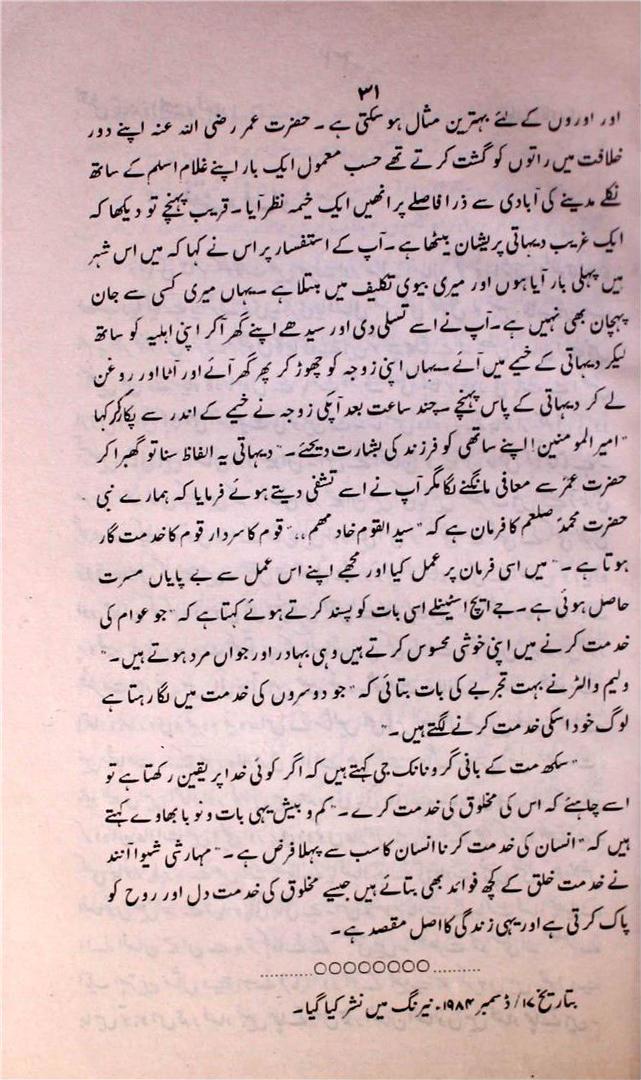 ۳۱
اور اوروں کے لئے بہترین مثال ہو سکتی ہے ۔ حضرت عمر رضی اللہ عنہ اپنے دور
خلافت میں راتوں کو گشت کرتے تھے حسب معمول ایک بار اپنے غلام اسلم کے ساتھ
نکلے مدینے کی آبادی سے ذرا فاصلے پر انھیں ایک خیمہ نظر آیا ۔ قریب پہنچے تو دیکھا کہ
ایک غریب دیہاتی پریشان بیٹھا ہے ۔ آپ کے استفسار پر اس نے کہا کہ میں اس شہر
میں پہلی بار آیا ہوں اور میری بیوی تکلیف میں مبتلا ہے ۔ یہاں میری کسی سے جان
پہچان بھی نہیں ہے ۔ آپ نے اسے تسلی دی اور سیدھے اپنے گھر آکر اپنی اہلیہ کو ساتھ
لیکر دیہاتی کے خیمے میں آئے ۔ یہاں اپنی زوجہ کو چھوڑ کر پھر گھر آئے اور آٹا اور روغن
لے کر دیہاتی کے پاس پہنچے ۔ چند ساعت بعد آپکی زوجہ نے خیمے کے اندر سے پکار کر کہا
"امیر المومنین! اپنے ساتھی کو فرزند کی بشارت دیجئے ۔" دیہاتی یہ الفاظ سنا تو گھبرا کر
حضرت عمرؓ سے معافی مانگنے لگا مگر آپ نے اسے تشفی دیتے ہوئے فرمایا کہ ہمارے نبی
حضرت محمدؐ صلعم کا فرمان ہے کہ "سید القوم خادمھم ،،" قوم کا سردار قوم کا خدمت گار
ہوتا ہے ۔" میں اسی فرمان پر عمل کیا اور مجھے اپنے اس عمل سے بے پایاں مسرت
حاصل ہوئی ہے ۔ جے ایچ اسٹینلے اسی بات کو پسند کرتے ہوئے کہتا ہے کہ "جو عوام کی
خدمت کرنے میں اپنی خوشی محسوس کرتے ہیں وہی بہادر اور جواں مرد ہوتے ہیں ۔"
ولیم والٹر نے بہت تجربے کی بات بتائی کہ "جو دوسروں کی خدمت میں لگا رہتا ہے
لوگ خود اسکی خدمت کرنے لگتے ہیں ۔"
"سکھ مت کے بانی گرو نانک جی کہتے ہیں کہ اگر کوئی خدا پر یقین رکھتا ہے تو
اسے چاہئے کہ اس کی مخلوق کی خدمت کرے ۔" کم و بیش یہی بات ونوبا بھاوے کہتے
ہیں کہ "انسان کی خدمت کرنا انسان کا سب سے پہلا فرض ہے ۔" مہارشی شیوا آنند
نے خدمت خلق کے کچھ فوائد بھی بتائے ہیں جیسے مخلوق کی خدمت دل اور روح کو
پاک کرتی ہے اور یہی زندگی کا اصل مقصد ہے ۔
..........○○○○○○○○..........
بتاریخ ۱۷/ ڈسمبر ۱۹۸۴ء نیرنگ میں نشر کیا گیا ۔